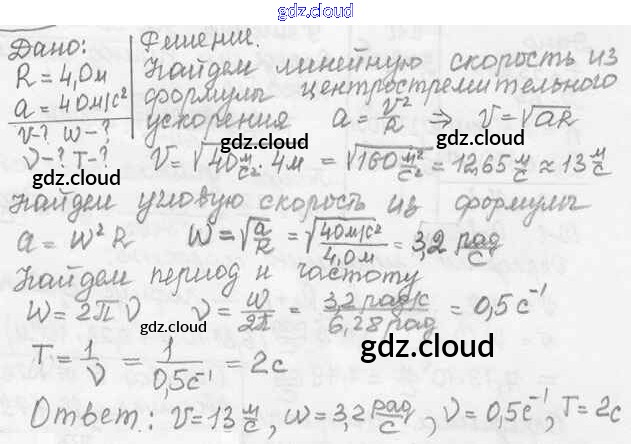 gdz.cloud
Дано:
R = 4,0 м
a = 40 м/с²
v-? w-?
ν-? T-?
gdz.cloud
Решение.
Найдем линейную скорость из
формулы центростремительного
ускорения a = v²/R ⇒ v = √aR
gdz.cloud
gdz.cloud
v = √40 м/с² · 4 м = √160 м²/с² = 12,65 м/с ≈ 13 м/с
gdz.cloud
Найдем угловую скорость из формулы
a = w² R w = √a/R = √40 м/с²/4,0 м = 3,2 рад/с
Найдем период и частоту
w = 2π ν ν = w/2π = 3,2 рад/с/6,28 рад = 0,5 с⁻¹
gdz.cloud
T = 1/ν = 1/0,5 с⁻¹ = 2 с
gdz.cloud
Ответ: v = 13 м/с, w = 3,2 рад/с, ν = 0,5 с⁻¹, T = 2 с